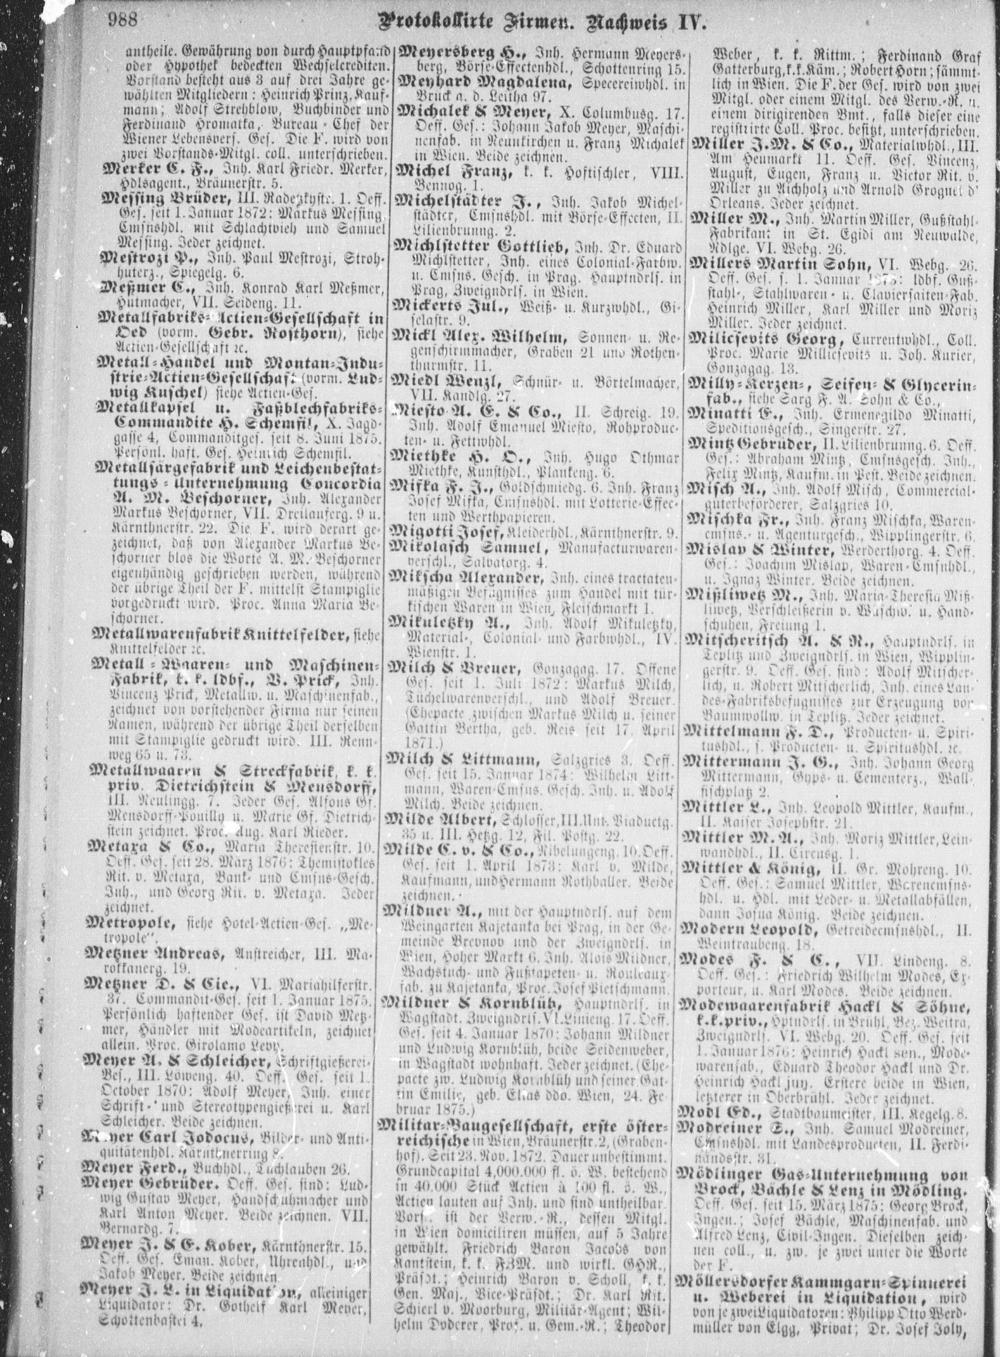 988
Protokollirte Firmen. Nachweis IV.
antheile. Gewährung von durch Hauptpfand
oder Hypothek bedeckten Wechselcrediten.
Vorstand besteht aus 3 auf drei Jahre ge-
wählten Mitgliedern: Heinrich Prinz, Kauf-
mann; Adolf Strehblow, Buchbinder und
Ferdinand Hromatka, Bureau-Chef der
Wiener Lebensvers. Ges. Die F. wird von
zwei Vorstands-Mitgl. coll. unterschrieben.
Merker C. F., Inh. Karl Friedr. Merker,
Hdlsagent., Bräunerstr. 5.
Messing Brüder, III. Radetzkystr. 1. Oeff.
Ges. seit 1. Januar 1872: Markus Messing,
Cmsnshdl. mit Schlachtvieh und Samuel
Messing. Jeder zeichnet.
Mestrozi P., Inh. Paul Mestrozi, Stroh-
huterz., Spiegelg. 6.
Meßmer C., Inh. Konrad Karl Meßmer,
Hutmacher, VII. Seideng. 11.
Metallfabriks-Actien-Gesellschaft in
Oed (vorm. Gebr. Rosthorn), siehe
Actien-Gesellschaft ꝛc.
Metall-Handel und Montan-Indu-
strie-Actien-Gesellschaft (vorm. Lud-
wig Kuschel) siehe Actien-Ges.
Metallkapsel u. Faßblechfabriks-
Commandite H. Schemfil, X. Jagd-
gasse 4, Commanditges. seit 8. Juni 1875.
Persönl. haft. Ges. Heinrich Schemfil.
Metallsärgefabrik und Leichenbestat-
tungs-Unternehmung Concordia
A. M. Beschorner, Inh. Alexander
Markus Beschorner, VII. Dreilauferg. 9 u.
Kärnthnerstr. 22. Die F. wird derart ge-
zeichnet, daß von Alexander Markus Be-
schorner blos die Worte A. M. Beschorner
eigenhändig geschrieben werden, während
der übrige Theil der F. mittelst Stampiglie
vorgedruckt wird. Proc. Anna Maria Be-
schorner.
Metallwarenfabrik Knittelfelder, siehe
Knittelfelder ꝛc.
Metall-Waaren- und Maschinen-
Fabrik, k. k. ldbf., V. Prick, Inh.
Vincenz Prick, Metallw. u. Maschinenfab.,
zeichnet von vorstehender Firma nur seinen
Namen, während der übrige Theil derselben
mit Stampiglie gedruckt wird. III. Renn-
weg 65 u. 73.
Metallwaaren & Streckfabrik, k. k.
priv. Dietrichstein & Mensdorff,
III. Reulingg. 7. Jeder Ges. Alfons Gf.
Mensdorff-Pouilly u. Marie Gf. Dietrich-
stein zeichnet. Proc. Aug. Karl Rieder.
Metaxa & Co., Maria Theresienstr. 10.
Oeff. Ges. seit 28. März 1876: Themistokles
Rit. v. Metaxa, Bank- und Cmsns-Gesch.
Inh., und Georg Rit. v. Metaxa. Jeder
zeichnet.
Metropole, siehe Hotel-Actien-Ges. „Me-
tropole".
Metzner Andreas, Anstreicher, III. Ma-
rokkanerg. 19.
Metzner D. & Cie., VI. Mariahilferstr.
37. Commandit-Ges. seit 1. Januar 1875.
Persönlich haftender Ges. ist David Metz-
mer, Händler mit Modeartikeln, zeichnet
allein. Proc. Girolamo Levy.
Meyer A. & Schleicher, Schriftgießerei-
Bes., III. Löweng. 40. Oeff. Ges. seit 1.
October 1870: Adolf Meyer, Inh. einer
Schrift- und Stereotypengießerei u. Karl
Schleicher. Beide zeichnen.
Meyer Carl Jodocus, Bilder- und Anti-
quitätenhdl. Kärnthnerring 8.
Meyer Ferd., Buchhdl., Tuchlauben 26.
Meyer Gebrüder. Oeff. Ges. sind: Lud-
wig Gustav Meyer, Handschuhmacher und
Karl Anton Meyer. Beide zeichnen. VII.
Bernardg. 7.
Meyer J. & E. Kober, Kärnthnerstr. 15.
Oeff. Ges. Eman. Kober, Uhrenhdl., und
Jakob Meyer. Beide zeichnen.
Meyer J. L. in Liquidation, alleiniger
Liquidator: Dr. Gotthelf Karl Meyer,
Schottenbastei 4.
Meyersberg H., Inh. Hermann Meyers-
berg, Börse-Effectenhdl., Schottenring 15.
Meyhard Magdalena, Specereiwhdl. in
Bruck a. d. Leitha 97.
Michalek & Meyer, X. Columbusg. 17.
Oeff. Ges.: Johann Jakob Meyer, Maschi-
nenfab. in Neunkirchen u. Franz Michalek
in Wien. Beide zeichnen.
Michel Franz, k. k. Hoftischler, VIII.
Bennog. 1.
Michelstädter J., Inh. Jakob Michel-
städter, Cmsnshdl. mit Börse-Effecten, II.
Lilienbrunng. 2.
Michlstetter Gottlieb, Inh. Dr. Eduard
Michlstetter, Inh. eines Colonial-Farbw.
u. Cmsns. Gesch. in Prag. Hauptndrls. in
Prag, Zweigndrls. in Wien.
Mickerts Jul., Weiß- u. Kurzwhdl., Gi-
selastr. 9.
Mickl Alex. Wilhelm, Sonnen- u. Re-
genschirmmacher, Graben 21 und Rothen-
thurmstr. 11.
Miedl Wenzl, Schnür- u. Börtelmacher,
VII. Kandlg. 27.
Miesto A. E. & Co., II. Schreig. 19.
Inh. Adolf Emanuel Miesto, Rohproduc-
ten- u. Fettwhdl.
Miethke H. O., Inh. Hugo Othmar
Miethke, Kunsthdl., Plankeng. 6.
Mifka F. J., Goldschmiedg. 6. Inh. Franz
Josef Mifka, Cmsnshdl. mit Lotterie-Effec-
ten und Werthpapieren.
Migotti Josef, Kleiderhdl., Kärnthnerstr. 9.
Mikolasch Samuel, Manufacturwaren-
verschl., Salvatorg. 4.
Mikscha Alexander, Inh. eines tractaten-
mäßigen Befugnisses zum Handel mit tür-
kischen Waren in Wien, Fleischmarkt 1.
Mikuletzky A., Inh. Adolf Mikuletzky,
Material-, Colonial- und Farbwhdl., IV.
Wienstr. 1.
Milch & Breuer, Gonzagag. 17. Offene
Ges. seit 1. Juli 1872: Markus Milch,
Tüchelwarenverschl., und Adolf Breuer.
(Ehepacte zwischen Markus Milch u. seiner
Gattin Bertha, geb. Reis seit 17. April
1871.)
Milch & Littmann, Salzgries 3. Oeff.
Ges. seit 15. Januar 1874: Wilhelm Litt-
mann, Waren-Cmsns. Gesch. Inh. u. Adolf
Milch. Beide zeichnen.
Milde Albert, Schlosser, III. Unt. Viaductg.
35 u. III. Hetzg. 12, Fil. Postg. 22.
Milde C. v. & Co., Nibelungeng. 10. Oeff.
Ges. seit 1. April 1873: Karl v. Milde,
Kaufmann, und Hermann Rothballer. Beide
zeichnen.
Mildner A., mit der Hauptndrls. auf dem
Weingarten Kajetanka bei Prag, in der Ge-
meinde Brevnov und der Zweigndrls. in
Wien, Hoher Markt 6. Inh. Alois Mildner,
Wachstuch- und Fußtapeten- u. Rouleaux-
fab. zu Kajetanka, Proc. Josef Pietschmann.
Mildner & Kornblüh, Hauptndrls. in
Wagstadt. Zweigndrls. VI. Linieng. 17. Oeff.
Ges. seit 4. Januar 1870: Johann Mildner
und Ludwig Kornblüh, beide Seidenweber,
in Wagstadt wohnhaft. Jeder zeichnet. (Ehe-
pacte zw. Ludwig Kornblüh und seiner Gat-
tin Emilie, geb. Elias ddo. Wien, 24. Fe-
bruar 1875.)
Militär-Baugesellschaft, erste öster-
reichische in Wien, Bräunerstr. 2, (Graben-
hof). Seit 23. Nov. 1872. Dauer unbestimmt.
Grundcapital 4,000.000 fl. ö. W. bestehend
in 40.000 Stück Actien à 100 fl. ö. W.,
Actien lauten auf Inh. und sind untheilbar.
Vors. ist der Verw.-R., dessen Mitgl.
in Wien domiciliren müssen, auf 5 Jahre
gewählt. Friedrich Baron Jacobs von
Kantstein, k. k. FZM. und wirkl. GHR.,
Präsdt.; Heinrich Baron v. Scholl, k. k.
Gen. Maj., Vice-Präsdt.; Dr. Karl Rit.
Schierl v. Moorburg, Militär-Agent; Wil-
helm Doderer, Prof. u. Gem.-R.; Theodor
Weber, k. k. Rittm.; Ferdinand Graf
Gatterburg, k. k. Käm.; Robert Horn; sämmt-
lich in Wien. Die F. der Ges. wird von zwei
Mitgl. oder einem Mitgl. des Verw.-R. u.
einem dirigirenden Bmt., falls dieser eine
registrirte Coll. Proc. besitzt, unterschrieben.
Miller J. M. & Co., Materialwhdl., III.
Am Heumarkt 11. Oeff. Ges. Vincenz,
August, Eugen, Franz u. Victor Rit. v.
Miller zu Aichholz und Arnold Grognet d'
Orleans. Jeder zeichnet.
Miller M., Inh. Martin Miller, Gußstahl-
Fabrikant in St. Egidi am Neuwalde,
Ndlge. VI. Webg. 26.
Millers Martin Sohn, VI. Webg. 26.
Oeff. Ges. s. 1. Januar 1875: ldbf. Guß-
stahl-, Stahlwaren- u. Claviersaiten-Fab.
Heinrich Miller, Karl Miller und Moriz
Miller. Jeder zeichnet.
Milicsevits Georg, Currentwhdl., Coll.
Proc. Marie Millicsevits u. Joh. Kurier,
Gonzagag. 13.
Milly-Kerzen-, Seifen- & Glycerin-
fab., siehe Sarg F. A. Sohn & Co.,
Minatti E., Inh. Ermenegildo Minatti,
Speditionsgesch., Singerstr. 27.
Mintz Gebrüder, II. Lilienbrunng. 6. Oeff.
Ges.: Abraham Mintz, Cmsnsgesch. Inh.,
Felix Mintz, Kaufm. in Pest. Beide zeichnen.
Misch A., Inh. Adolf Misch, Commercial-
güterbeförderer, Salzgries 10.
Mischka Fr., Inh. Franz Mischka, Waren-
cmsns.- u. Agenturgesch., Wipplingerstr. 6.
Mislap & Winter, Werderthorg. 4. Oeff.
Ges.: Joachim Mislap, Waren-Cmsnhdl.,
u. Ignaz Winter. Beide zeichnen.
Mißliwetz M., Inh. Maria Theresia Miß-
liwetz, Verschleißerin v. Waschw. u. Hand-
schuhen, Freiung 1.
Mitscheritsch A. & R., Hauptndrls. in
Teplitz und Zweigndrls. in Wien, Wipplin-
gerstr. 9. Oeff. Ges. sind: Adolf Mitscher-
lich, u. Robert Mitscherlich, Inh. eines Lan-
des-Fabriksbefugnisses zur Erzeugung von
Baumwollw. in Teplitz. Jeder zeichnet.
Mittelmann F. D., Producten- u. Spiri-
tushdl., s. Producten- u. Spiritushdl. ꝛc.
Mittermann J. G., Inh. Johann Georg
Mittermann, Gyps- u. Cementerz., Wall-
fischplatz 2.
Mittler L., Inh. Leopold Mittler, Kaufm.,
II. Kaiser Josephstr. 21.
Mittler M. A., Inh. Moriz Mittler, Lein-
wandhdl., II. Circusg. 1.
Mittler & König, II. Gr. Mohreng. 10.
Oeff. Ges.: Samuel Mittler, Warencmsns-
hdl. u. Hdl. mit Leder- u. Metallabfällen,
dann Josua König. Beide zeichnen.
Modern Leopold, Getreidecmsnshdl., II.
Weintraubeng. 18.
Modes F. & C., VII. Lindeng. 8.
Oeff. Ges.: Friedrich Wilhelm Modes, Ex-
porteur, u. Karl Modes. Beide zeichnen.
Modewaarenfabrik Hackl & Söhne,
k. k. priv., Hptndrls. in Brühl, Bez. Weitra,
Zweigndrls. VI. Webg. 20. Oeff. Ges. seit
1. Januar 1876: Heinrich Hackl sen., Mode-
warenfab., Eduard Theodor Hackl und Dr.
Heinrich Hackl jun. Erstere beide in Wien,
letzterer in Oberbrühl. Jeder zeichnet.
Modl Ed., Stadtbaumeister, III. Kegelg. 8.
Modreiner S., Inh. Samuel Modreiner,
Cmsnshdl. mit Landesproducten, II. Ferdi-
nandsstr. 31.
Mödlinger Gas-Unternehmung von
Brock, Bächle & Lenz in Mödling.
Oeff. Ges. seit 15. März 1875: Georg Brock,
Ingen.; Josef Bächle, Maschinenfab. und
Alfred Lenz, Civil-Ingen. Dieselben zeich-
nen coll., u. zw. je zwei unter die Worte
der F.
Möllersdorfer Kammgarn-Spinnerei
u. Weberei in Liquidation, wird
von je zwei Liquidatoren: Philipp Otto Werd-
müller von Elgg, Privat; Dr. Josef Joly,